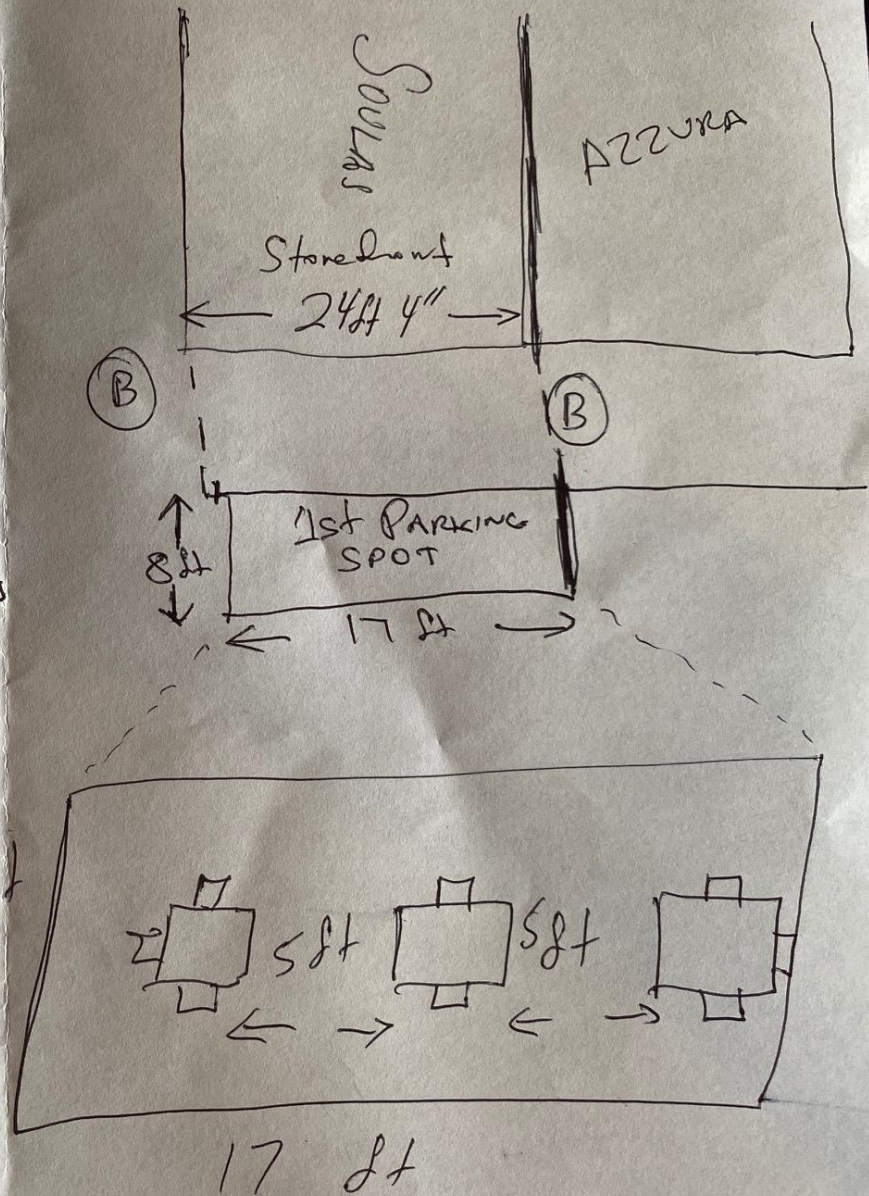 AZZURA
Storefront
24ft 4"
B
B
1st PARKING
SPOT
8ft
17 ft
5ft
5ft
17 ft